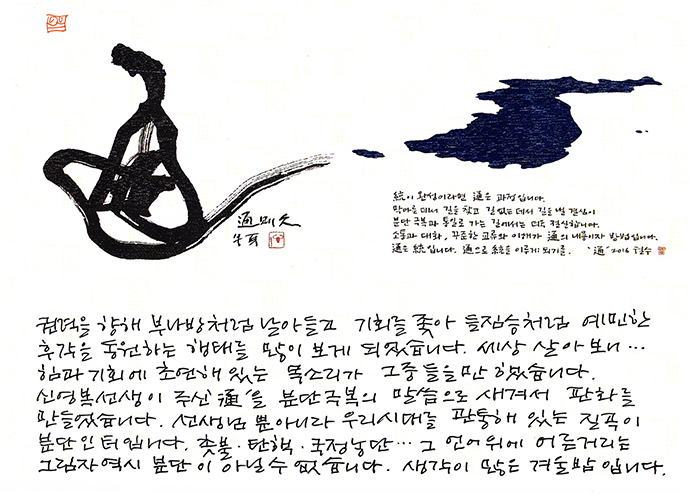 通則久
牛耳
統이 완성이라면 通은 과정입니다.
막아를 데서 길을 찾고 길 없는 데서 길을 낼 결심이
분단 극복과 통일로 가는 길에서는 더욱 절실합니다.
소통과 대화, 꾸준한 교류와 이해가 通의 내용이자 방법입니다.
通은 統입니다. 通으로 統을 이루게 되기를. '通' 2016 철수
권력을 향해 부나방처럼 날아들고 기회를 좇아 들짐승처럼 예민한
후각을 동원하는 행태를 많이 보게 되었습니다. 세상 살아 보니…
힘과 기회에 초연해 있는 목소리가 그중 들을만 했습니다.
신영복선생이 주신 '通'을 분단극복의 말씀으로 새겨서 판화를
만들었습니다. 선생님 뿐아니라 우리시대를 관통해 있는 질곡이
분단인 터입니다. 촛불·탄핵·국정농단… 그 언어위에 어른거리는
그림자 역시 분단이 아닐 수 없습니다. 생각이 많은 겨울밤입니다.